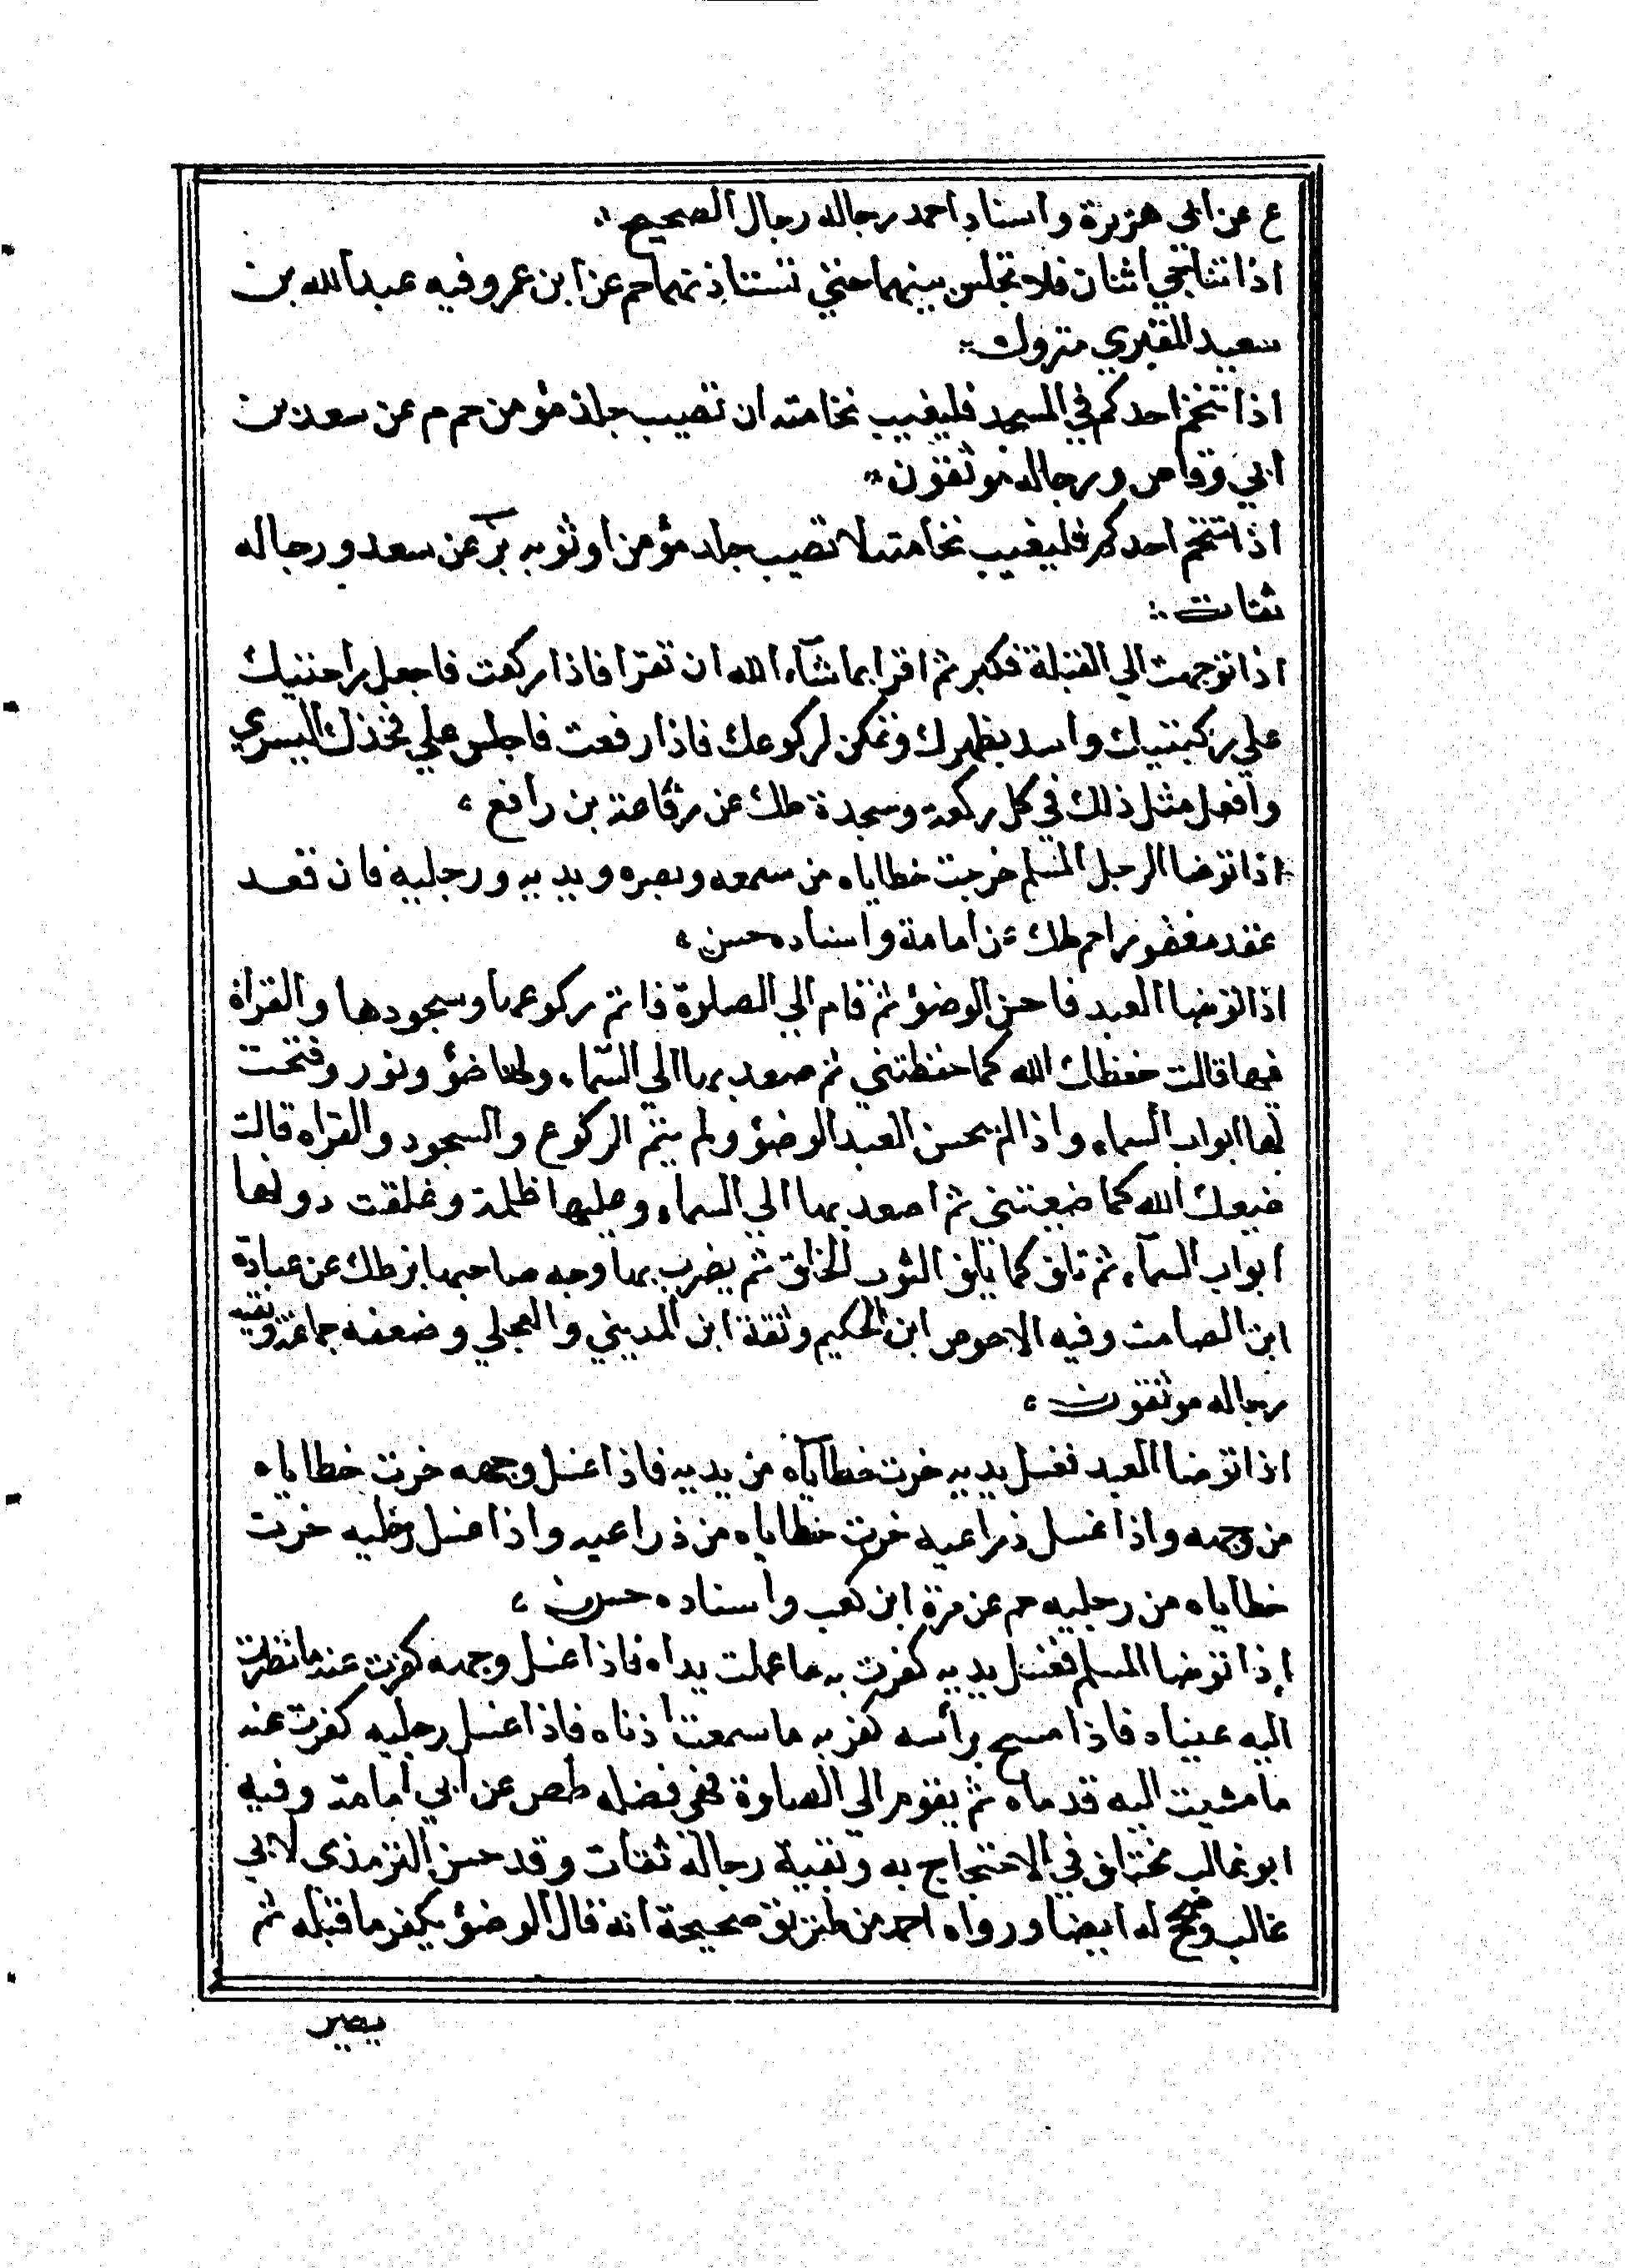 ع عن ابى هريرة واسناد احمد رجاله رجال الصحيح
اذا تناجى اثنان فلا تجلس بينهما حتي تستاذنهما حم عن ابن عمر وفيه عبد الله بن
سعيد المقبري متروك
اذا تنخم احدكم في المسجد فليغيب نخامته ان تصيب جلد مؤمن حم م عن سعد بن
ابي وقاص ورجاله موثقون
اذا تنخم احدكم فليغيب نخامته لا تصيب جلد مؤمن او ثوبه بز عن سعد ورجاله
ثقات
اذا توجهت الي القبلة فكبر ثم اقرا بما شآء الله ان تقرا فاذا ركعت فاجعل راحتيك
علي ركبتيك وامدد بظهرك وتمكن لركوعك فاذا رفعت فاجلس علي فخذك اليسري
وافعل مثل ذلك في كل ركعة وسجدة طك عن رفاعة بن رافع
اذا توضا الرجل المسلم خرجت خطاياه من سمعه وبصره ويديه ورجليه فان قعد
عقد مغفورا حم طك عن امامة واسناده حسن
اذا توضا العبد فاحسن الوضؤ ثم قام الي الصلوة فاتم ركوعها وسجودها والقراة
فيها قالت حفظك الله كما حفظتني ثم صعد بها الي السماء ولها ضؤ ونور وفتحت
لها ابواب السماء واذا لم يحسن العبد الوضؤ ولم يتم الركوع والسجود والقراه قالت
ضيعك الله كما ضيعتني ثم اصعد بها الي السماء وعليها ظلمة وغلقت دونها
ابواب السمآء ثم تلف كما يلف الثوب الخلق ثم يضرب بها وجه صاحبها بز طك عن عبادة
ابن الصامت وفيه الاحوص ابن الحكيم وثقة ابن المديني والعجلي وضعفه جماعة وبقيه
رجاله موثقون
اذا توضا العبد فغسل يديه خرت خطاياه من يديه فاذا غسل وجهه خرت خطاياه
من وجهه واذا غسل ذراعيه خرت خطاياه من ذراعيه واذا غسل رجليه خرت
خطاياه من رجليه حم عن مرة ابن كعب واسناده حسن
اذا توضا المسلم فغسل يديه كفرت به ما عملت يداه فاذا غسل وجهه كفرت عنه ما نظرت
اليه عيناه فاذا مسح برأسه كفر به ما سمعت اذناه فاذا غسل رجليه كفرت عنه
ما مشيت اليه قدماه ثم يقوم الي الصلوة فهي فضله طص عن ابي امامة وفيه
ابو غالب مختلف في الاحتجاج به وبقية رجاله ثقات وقد حسن الترمذي لابي
غالب وصحح له ايضا ورواه احمد من طريق صحيحة انه قال الوضؤ يكفر ما قبله ثم
يصير